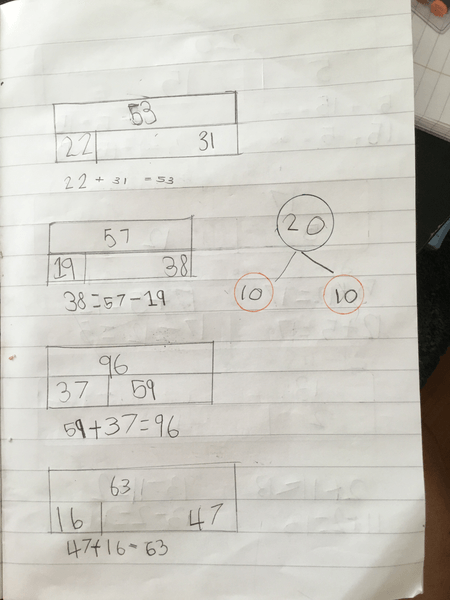 53
22 31
22 + 31 = 53
57
19 38
38 = 57 - 19
20
10 10
96
37 59
59 + 37 = 96
63
16 47
47 + 16 = 63